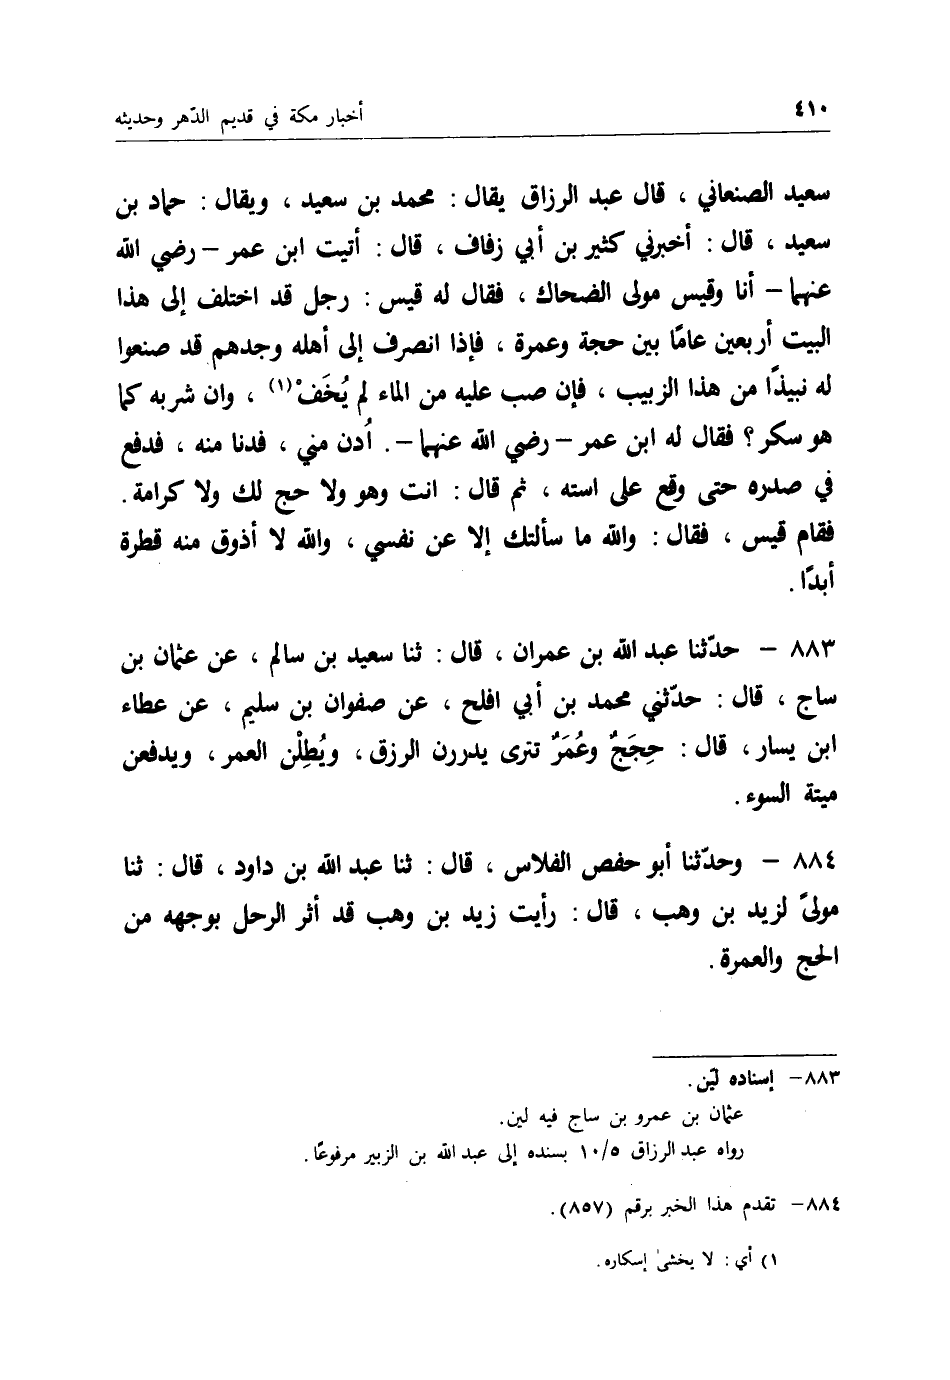 ٤١٠
أخبار مكة في قديم الدّهر وحديثه
سعيد الصنعاني ، قال عبد الرزاق يقال : محمد بن سعيد ، ويقال : حماد بن
سعيد ، قال : أخبرني كثير بن أبي زفاف ، قال : أتيت ابن عمر – رضي الله
عنهما – أنا وقيس مولى الضحاك ، فقال له قيس : رجل قد اختلف إلى هذا
البيت أربعين عامًا بين حجة وعمرة ، فإذا انصرف إلى أهله وجدهم قد صنعوا
له نبيذًا من هذا الزبيب ، فإن صب عليه من الماء لم يُخَفْ(١) ، وان شربه كما
هو سكر؟ فقال له ابن عمر – رضي الله عنهما – . اُدن مني ، فدنا منه ، فدفع
في صدره حتى وقع على استه ، ثم قال : انت وهو ولا حج لك ولا كرامة .
فقام قيس ، فقال : والله ما سألتك إلا عن نفسي ، والله لا أذوق منه قطرة
أبدًا .
٨٨٣ – حدّثنا عبد الله بن عمران ، قال : ثنا سعيد بن سالم ، عن عثمان بن
ساج ، قال : حدّثني محمد بن أبي افلح ، عن صفوان بن سليم ، عن عطاء
ابن يسار ، قال : حِجَجٌ وعُمَرٌ تترى يدررن الرزق ، ويُطِلْن العمر ، ويدفعن
ميتة السوء .
٨٨٤ – وحدّثنا أبو حفص الفلاس ، قال : ثنا عبد الله بن داود ، قال : ثنا
مولىً لزيد بن وهب ، قال : رأيت زيد بن وهب قد أثر الرحل بوجهه من
الحج والعمرة .
٨٨٣– إسناده ليّن .
عثمان بن عمرو بن ساج فيه لين .
رواه عبد الرزاق ١٠/٥ بسنده إلى عبد الله بن الزبير مرفوعًا .
٨٨٤– تقدم هذا الخبر برقم (٨٥٧) .
١) أي : لا يخشى إسكاره .